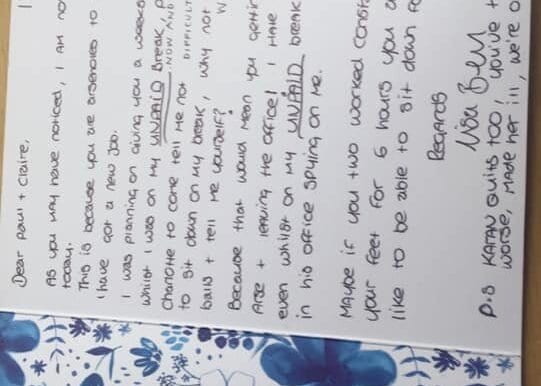 Dear Paul + Claire,
As you may have noticed, I am no
today.
This is because you are arseholes to
I have got a new job.
I was planning on giving you a weeks
whilst I was on my UNPAID break,
NOW AND
Charlotte to come tell me not DIFFICULT
to sit down on my break, why not
balls + tell me yourself? W
Because that would mean you getting
Arse + leaving the office! I HATE
even whilst on my UNPAID break
in his office spying on me.
Maybe if you two worked const
your feet for 6 hours you
like to be able to sit down
Regards
Nia Ben
P.S KATAN quits too, you've
worse, made her ill, we're